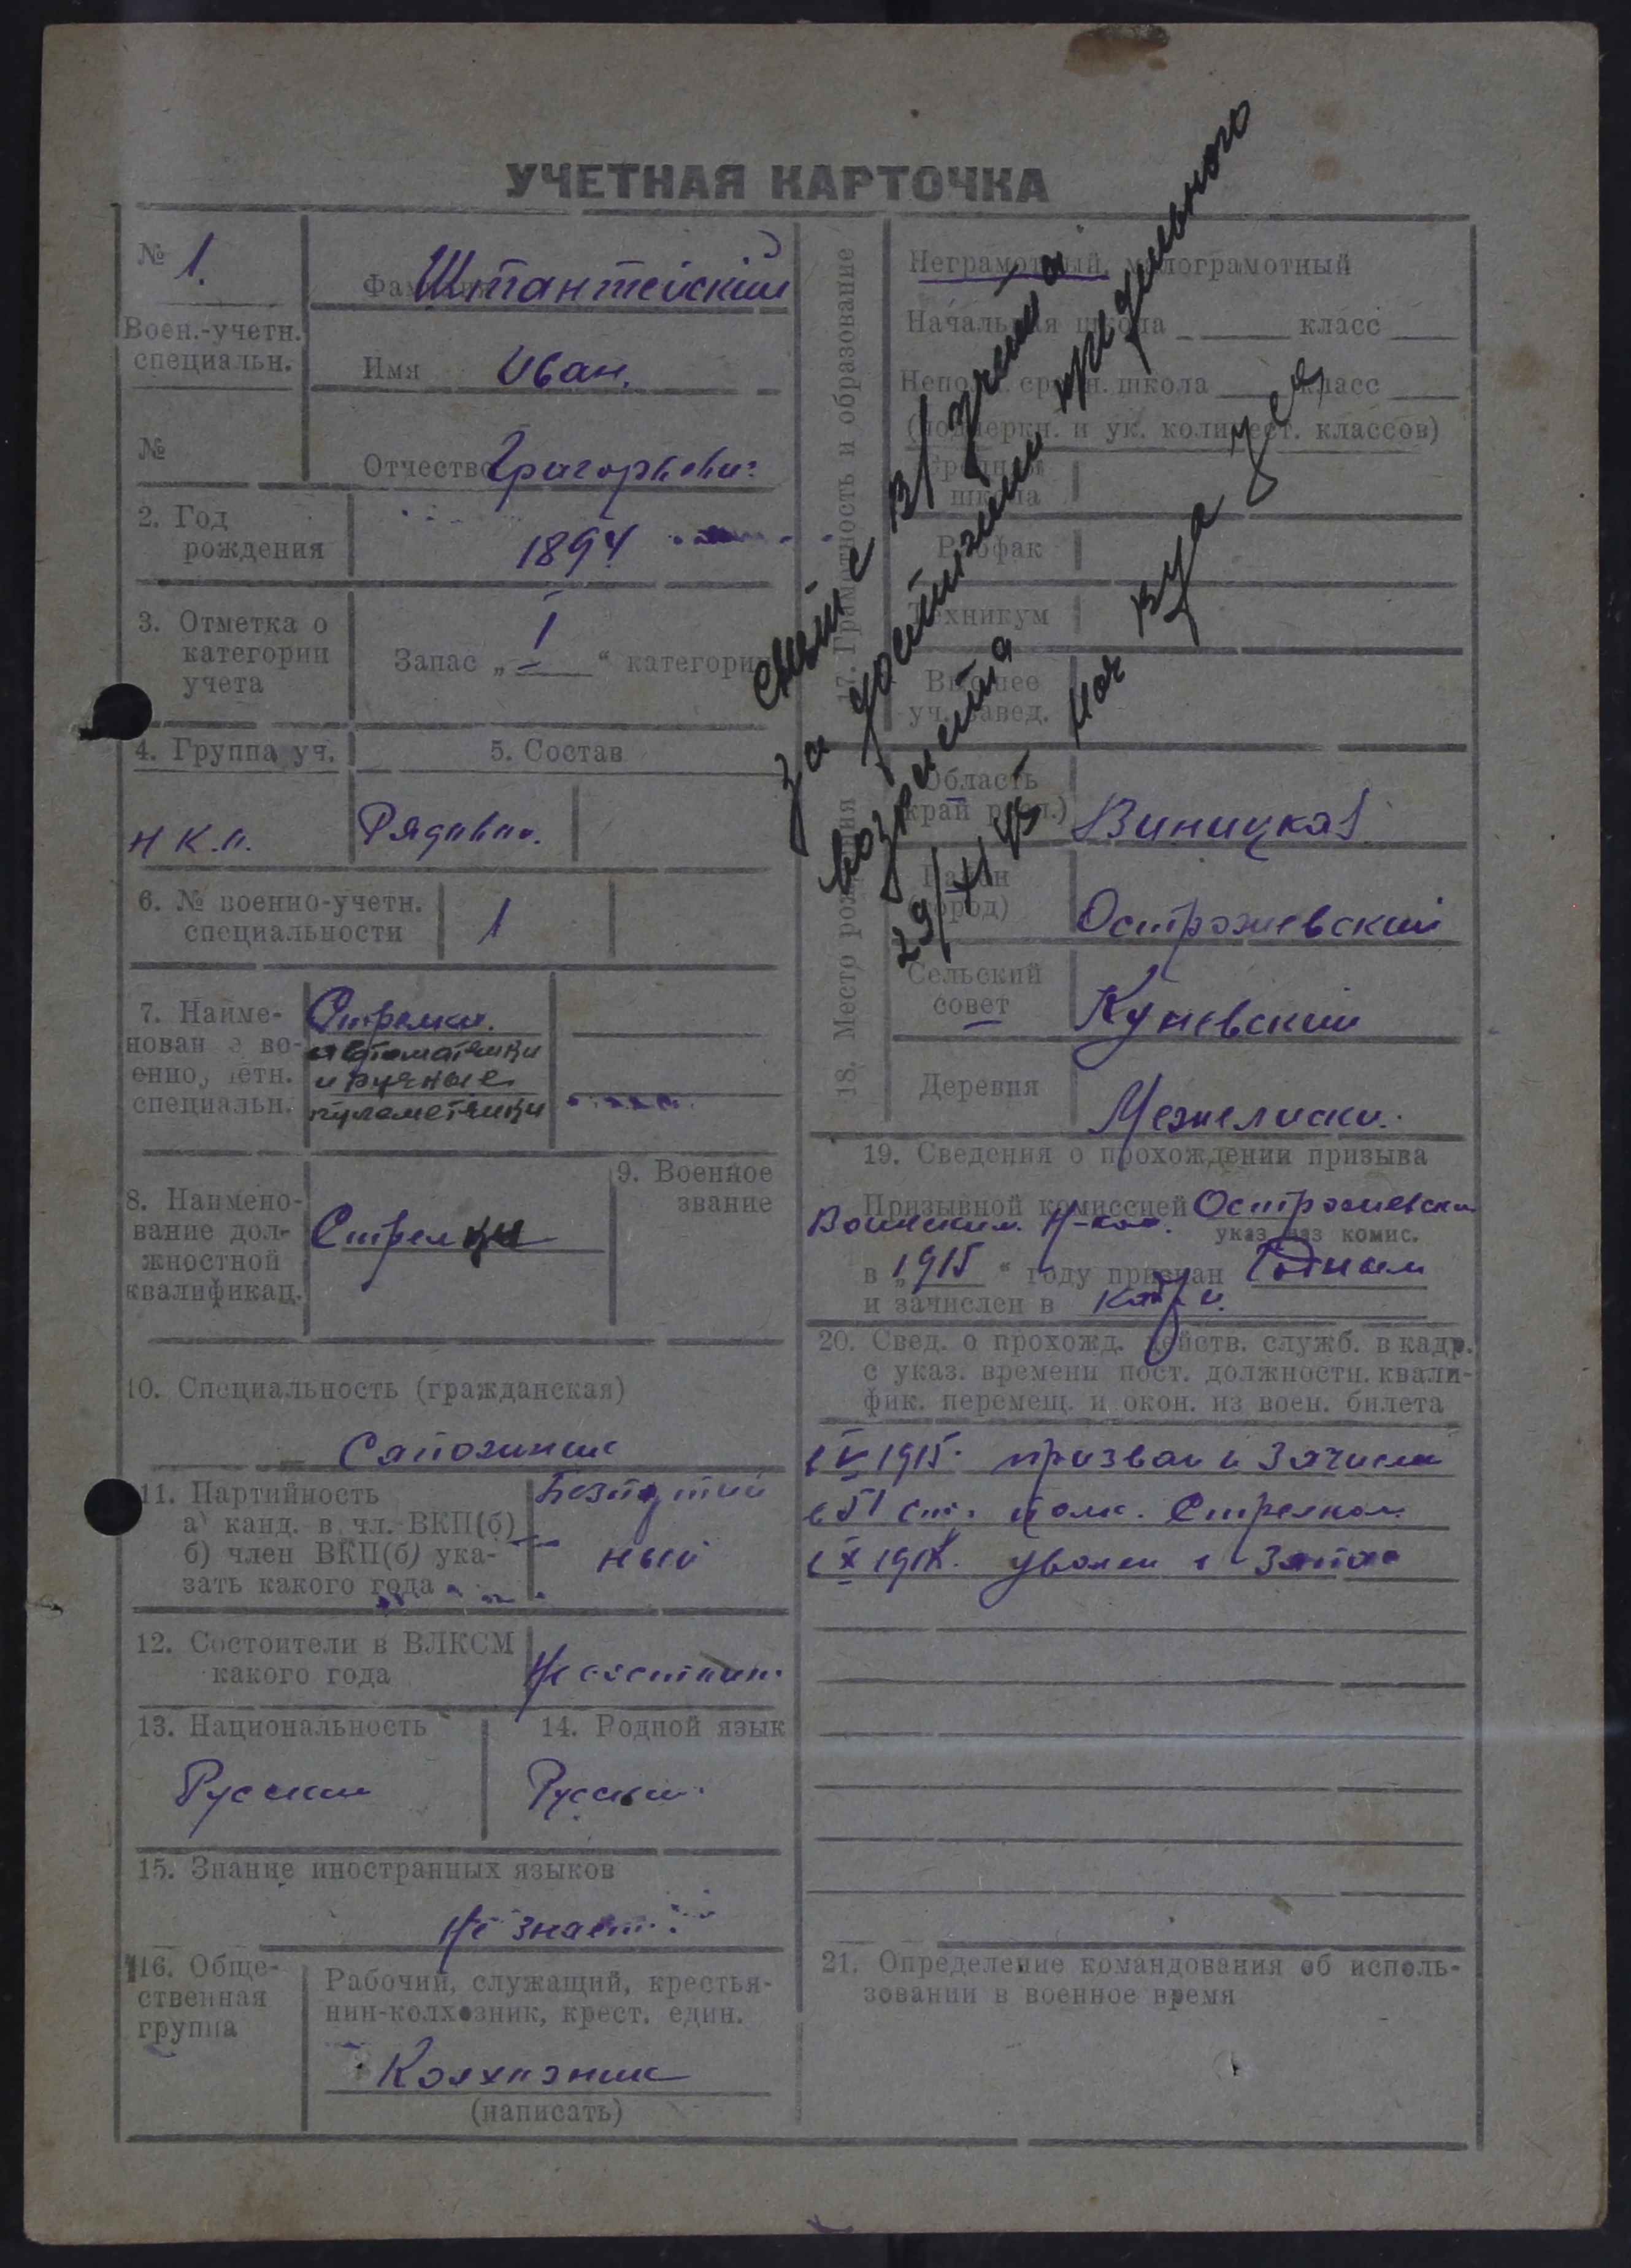 УЧЕТНАЯ КАРТОЧКА
№ 1.
Воен.-учетн.
специальн.
№
Фамилия Штантейский
Имя Иван.
Отчество Григорьевич
2. Год
рождения
1894
3. Отметка о
категории
учета
Запас „ I “ категории
4. Группа уч.
5. Состав
Н К.О.
Рядовой.
6. № военно-учетн.
специальности
1
7. Наиме-
нование во-
енно учетн.
специальн.
Стрелки.
автоматчики
и ручные
пулеметчики
8. Наимено-
вание дол-
жностной
квалификац.
Стрелки
9. Военное
звание
10. Специальность (гражданская)
Сапожник
11. Партийность
а) канд. в чл. ВКП(б)
б) член ВКП(б) ука-
зать какого года
Безпартий
ный
12. Состоит ли в ВЛКСМ
какого года
Не состоит.
13. Национальность
Русский
14. Родной язык
Русский.
15. Знание иностранных языков
Не знает
16. Обще-
ственная
группа
Рабочий, служащий, крестья-
нин-колхозник, крест. един.
Колхозник
(написать)
17. Грамотность и образование
Неграмотный, малограмотный
Начальная школа класс
Непол. средн. школа класс
(подчеркн. и ук. количест. классов)
Средняя
школа
Рабфак
Техникум
Высшее
уч. завед.
снят с в/учета
за достижением предельного
возраста
29/XI 45 Нач
18. Место рождения
Область
край респ.)
Виницкая
Район
город)
Острожевский
Сельский
совет
Куневский
Деревня
Межелиски.
19. Сведения о прохождении призыва
Призывной комиссией Острожевски
Воинским.
указ. наз комис.
в „ 1915 “ году признан Годным
и зачислен в
20. Свед. о прохожд. действ. служб. в кадр.
с указ. времени пост. должностн. квали-
фик. перемещ. и окон. из воен. билета
с V 1915. призван и зачислен
в 51 ст. полк. Стрелком
с X 191 уволен в запас
21. Определение командования об исполь-
зовании в военное время